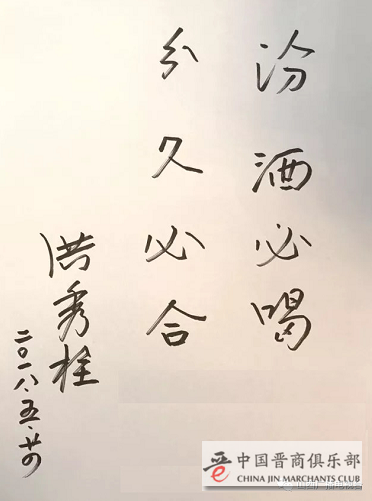 汾酒必喝
分久必合
洪秀柱
二〇一八.五.廿四
晋
中国晋商俱乐部
CHINA JIN MARCHANTS CLUB